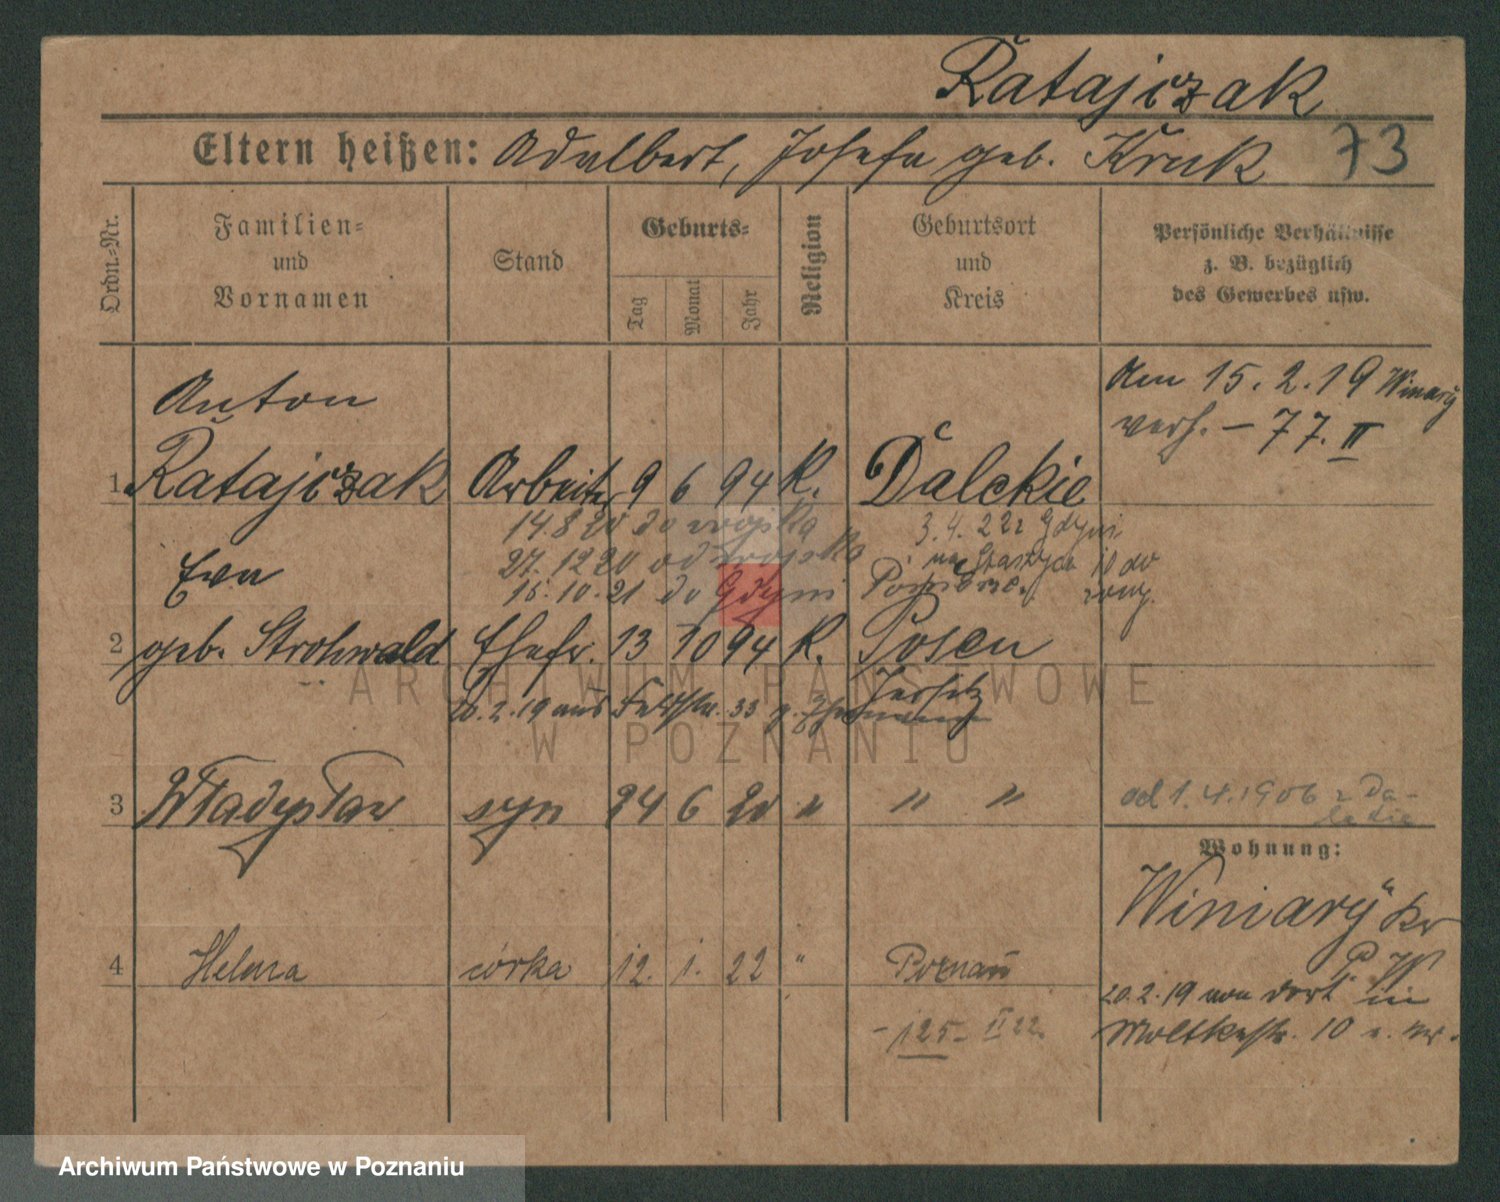 Ratajczak
Eltern heißen: Adalbert, Josefa geb. Kruk 73
Ordn.-Nr.
Familien-
und
Vornamen
Stand
Geburts-
Tag
Monat
Jahr
Religion
Geburtsort
und
Kreis
Persönliche Verhältnisse
z. B. bezüglich
des Gewerbes usw.
Am 15.2.19 Winiary
verh. – 77. II
Anton
1 Ratajczak Arbeiter 9 6 94 K. Dalekie
14.8.20 do wojska
27.12.20 od wojska
15.10.21 do Gdyni
3.4.22 z Gdyni
na
10 do
Ewa
2 geb. Strohwald Ehefr. 13 10 94 K. Posen
Jersitz
20.2.19 aus Feldstr. 33 z. Ehemann
3 Władysław syn 24 6 20 " " "
od 1.4.1906 z Da-
lekie
Wohnung:
Winiary Kr
P. W
20.2.19 von dort in
Moltkestr. 10
4 Helena córka 12. 1. 22 " Poznań
– 125 – II 22.
ARCHIWUM PAŃSTWOWE
W POZNANIU
Archiwum Państwowe w Poznaniu